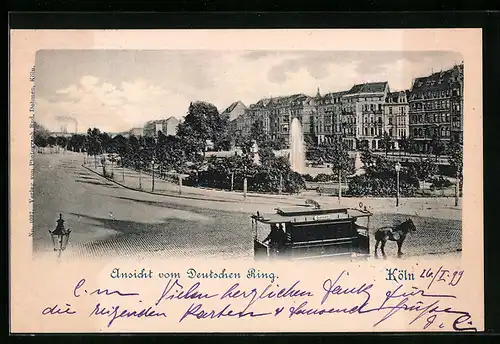 Ansicht vom Deutschen Ring.
Köln 26/I. 99
C. m. Vielen herzlichen Dank für
die reizenden Karten & tausend Grüße